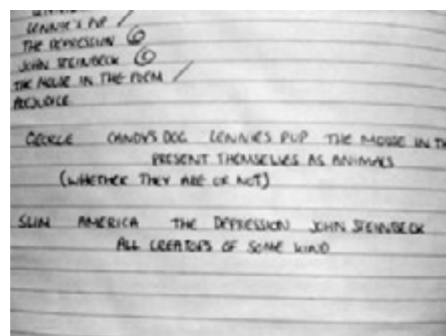 LENNIE'S PUP /
THE DEPRESSION ©
JOHN STEINBECK ©
THE MOUSE IN THE POEM /
PREJUDICE
GEORGE CANDY'S DOG LENNIES PUP THE MOUSE IN TH
PRESENT THEMSELVES AS ANIMALS
(WHETHER THEY ARE OR NOT)
SLIM AMERICA THE DEPRESSION JOHN STEINBECK
ALL CREATORS OF SOME KIND